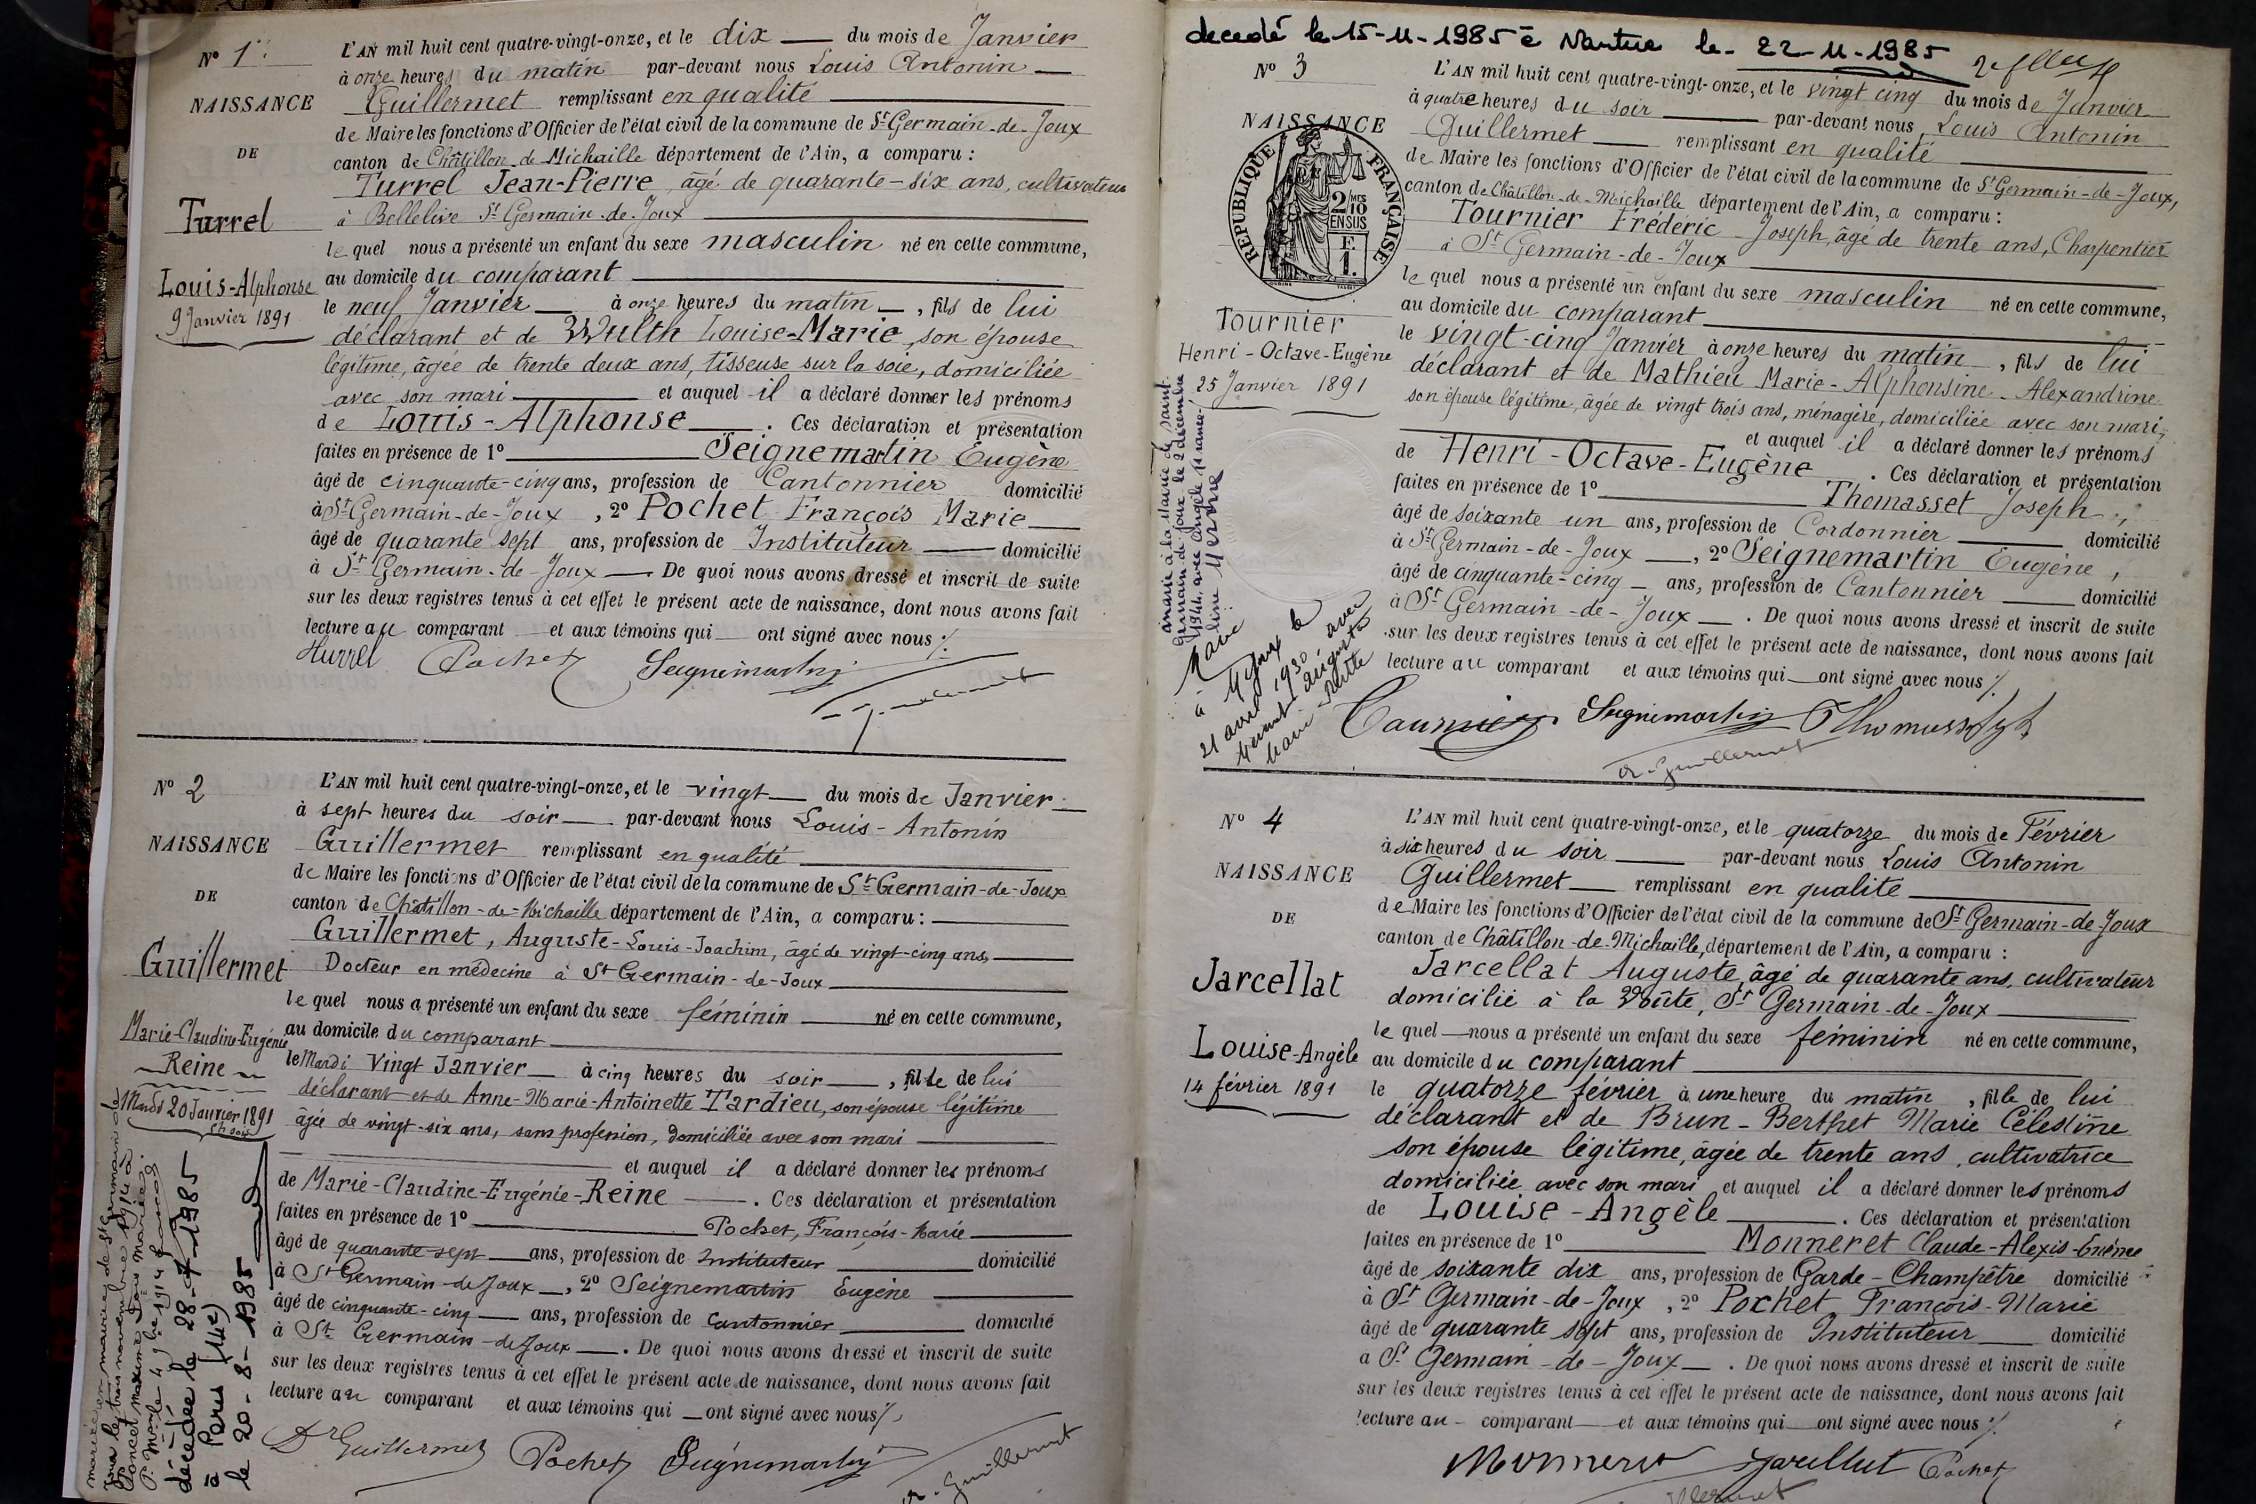 Nº 1
NAISSANCE
DE
Turrel
Louis-Alphonse
9 Janvier 1891
L'AN mil huit cent quatre-vingt-onze, et le dix du mois de Janvier
à onze heures du matin par-devant nous Louis Antonin
Guillermet remplissant en qualité
de Maire les fonctions d'Officier de l'état civil de la commune de St Germain-de-Joux
canton de Châtillon-de-Michaille département de l'Ain, a comparu :
Turrel Jean-Pierre, âgé de quarante-six ans, cultivateur
à Bellelive St Germain-de-Joux
lequel nous a présenté un enfant du sexe masculin né en cette commune,
au domicile du comparant
le neuf Janvier à onze heures du matin, fils de lui
déclarant et de Wulth Louise-Marie, son épouse
légitime, âgée de trente deux ans, tisseuse sur la soie, domiciliée
avec son mari et auquel il a déclaré donner les prénoms
de Louis-Alphonse. Ces déclaration et présentation
faites en présence de 1º Seignemartin Eugène
âgé de cinquante-cinq ans, profession de Cantonnier domicilié
à St Germain-de-Joux, 2º Pochet François Marie
âgé de quarante sept ans, profession de Instituteur domicilié
à St Germain-de-Joux. De quoi nous avons dressé et inscrit de suite
sur les deux registres tenus à cet effet le présent acte de naissance, dont nous avons fait
lecture au comparant et aux témoins qui ont signé avec nous ./.
Turrel Pochet Seignemartin
Nº 2
NAISSANCE
DE
Guillermet
Marie-Claudine-Eugénie
Reine
Mardi 20 Janvier 1891
5h soir
L'AN mil huit cent quatre-vingt-onze, et le vingt du mois de Janvier
à sept heures du soir par-devant nous Louis-Antonin
Guillermet remplissant en qualité
de Maire les fonctions d'Officier de l'état civil de la commune de St Germain-de-Joux
canton de Châtillon-de-Michaille département de l'Ain, a comparu :
Guillermet, Auguste-Louis-Joachim, âgé de vingt-cinq ans,
Docteur en médecine à St Germain-de-Joux
lequel nous a présenté un enfant du sexe féminin né en cette commune,
au domicile du comparant
le Mardi Vingt Janvier à cinq heures du soir, fille de lui
déclarant et de Anne-Marie-Antoinette Tardieu, son épouse légitime
âgée de vingt-six ans, sans profession, domiciliée avec son mari
et auquel il a déclaré donner les prénoms
de Marie-Claudine-Eugénie-Reine. Ces déclaration et présentation
faites en présence de 1º Pochet, François-Marie
âgé de quarante-sept ans, profession de Instituteur domicilié
à St Germain-de-Joux, 2º Seignemartin Eugène
âgé de cinquante-cinq ans, profession de Cantonnier domicilié
à St Germain-de-Joux. De quoi nous avons dressé et inscrit de suite
sur les deux registres tenus à cet effet le présent acte de naissance, dont nous avons fait
lecture au comparant et aux témoins qui ont signé avec nous ./.
Dr Guillermet Pochet Seignemartin A. Guillermet
mariée en mairie de St Germain de
Joux le trois novembre 1914 à
Poncet Maxime Louis Marie
décédée le 28-7-1985
à Paris (14e)
le 20-8-1985
decedé le 15-11-1985 à Nantua le 22-11-1985
Nº 3
NAISSANCE
RÉPUBLIQUE FRANÇAISE
2 MES
2/10
EN SUS
F.
1.
Tournier
Henri-Octave-Eugène
25 Janvier 1891
marié à la Mairie de Saint
Germain de Joux le 2 décembre
1944, avec Angèle
Mermet
Marié
à le
21 avril 1930 avec
L'AN mil huit cent quatre-vingt-onze, et le vingt cinq du mois de Janvier
à quatre heures du soir par-devant nous, Louis Antonin
Guillermet remplissant en qualité
de Maire les fonctions d'Officier de l'état civil de la commune de St Germain-de-Joux,
canton de Châtillon-de-Michaille département de l'Ain, a comparu :
Tournier Frédéric Joseph, âgé de trente ans, Charpentier
à St Germain-de-Joux
lequel nous a présenté un enfant du sexe masculin né en cette commune,
au domicile du comparant
le vingt-cinq Janvier à onze heures du matin, fils de lui
déclarant et de Mathieu Marie-Alphonsine-Alexandrine
son épouse légitime, âgée de vingt trois ans, ménagère, domiciliée avec son mari,
et auquel il a déclaré donner les prénoms
de Henri-Octave-Eugène. Ces déclaration et présentation
faites en présence de 1º Thomasset Joseph,
âgé de soixante un ans, profession de Cordonnier domicilié
à St Germain-de-Joux, 2º Seignemartin Eugène,
âgé de cinquante-cinq ans, profession de Cantonnier domicilié
à St Germain-de-Joux. De quoi nous avons dressé et inscrit de suite
sur les deux registres tenus à cet effet le présent acte de naissance, dont nous avons fait
lecture au comparant et aux témoins qui ont signé avec nous ./.
Tournier Seignemartin Thomasset
A. Guillermet
Nº 4
NAISSANCE
DE
Jarcellat
Louise-Angèle
14 février 1891
L'AN mil huit cent quatre-vingt-onze, et le quatorze du mois de Février
à six heures du soir par-devant nous Louis Antonin
Guillermet remplissant en qualité
de Maire les fonctions d'Officier de l'état civil de la commune de St Germain-de-Joux
canton de Châtillon-de-Michaille, département de l'Ain, a comparu :
Jarcellat Auguste, âgé de quarante ans, cultivateur
domicilié à la Voûte, St Germain-de-Joux
lequel nous a présenté un enfant du sexe féminin né en cette commune,
au domicile du comparant
le quatorze février à une heure du matin, fille de lui
déclarant et de Brun-Berthet Marie Célestine
son épouse légitime, âgée de trente ans, cultivatrice
domiciliée avec son mari et auquel il a déclaré donner les prénoms
de Louise-Angèle. Ces déclaration et présentation
faites en présence de 1º Monneret Claude-Alexis-
âgé de soixante dix ans, profession de Garde-Champêtre domicilié
à St Germain-de-Joux, 2º Pochet François-Marie
âgé de quarante sept ans, profession de Instituteur domicilié
à St Germain-de-Joux. De quoi nous avons dressé et inscrit de suite
sur les deux registres tenus à cet effet le présent acte de naissance, dont nous avons fait
lecture au comparant et aux témoins qui ont signé avec nous ./.
Monneret Pochet